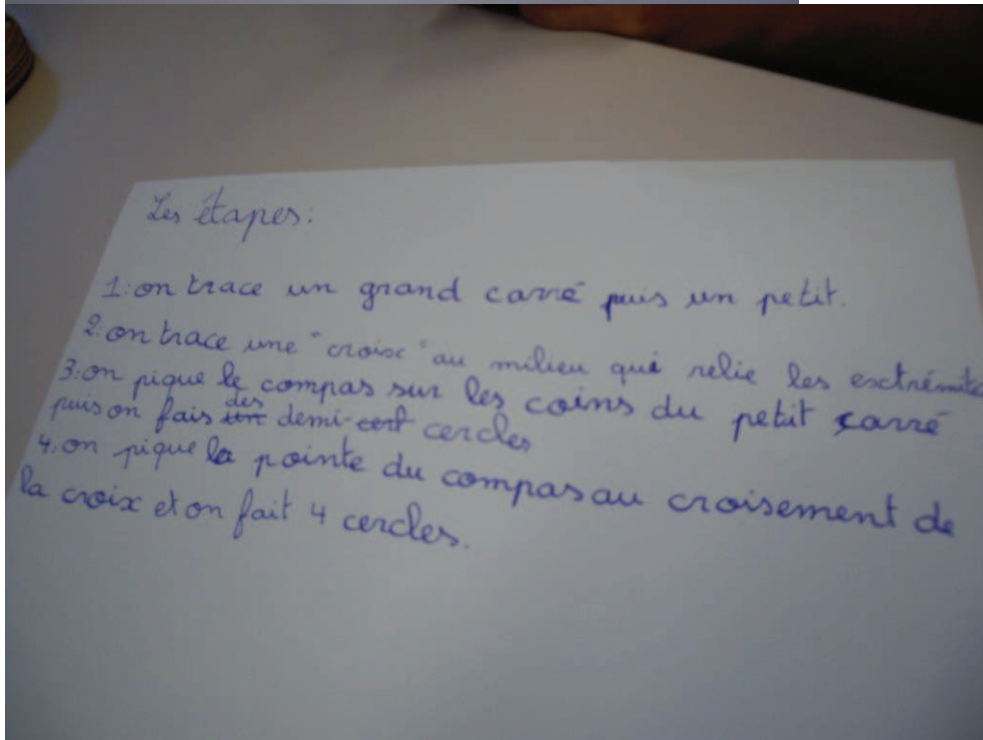 Les étapes:
1: on trace un grand carré puis un petit.
2: on trace une "croix" au milieu qui relie les exctrémités
3: on pique le compas sur les coins du petit carré
puis on fais des demi-cercles
4: on pique la pointe du compas au croisement de
la croix et on fait 4 cercles.